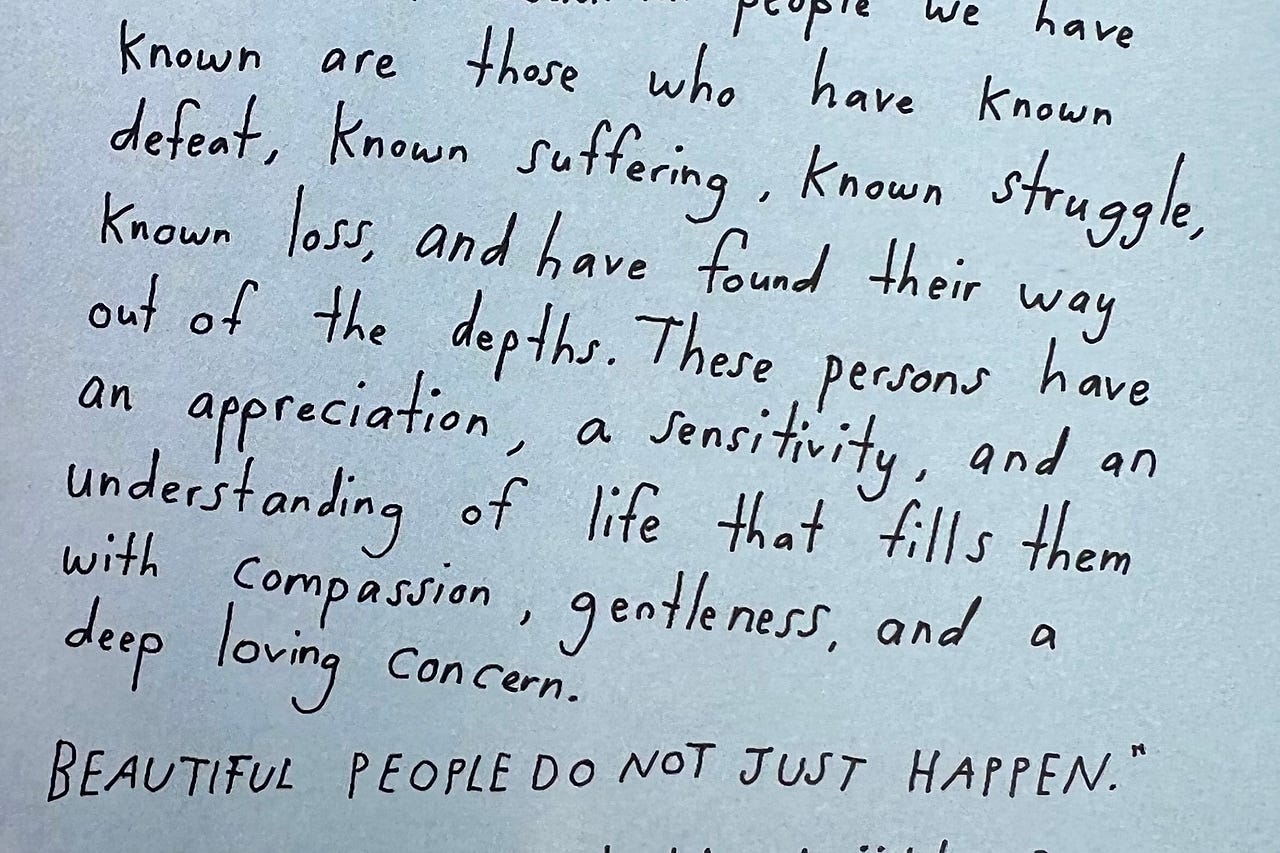 people we have
known are those who have known
defeat, known suffering, known struggle,
known loss, and have found their way
out of the depths. These persons have
an appreciation, a sensitivity, and an
understanding of life that fills them
with compassion, gentleness, and a
deep loving concern.
BEAUTIFUL PEOPLE DO NOT JUST HAPPEN."